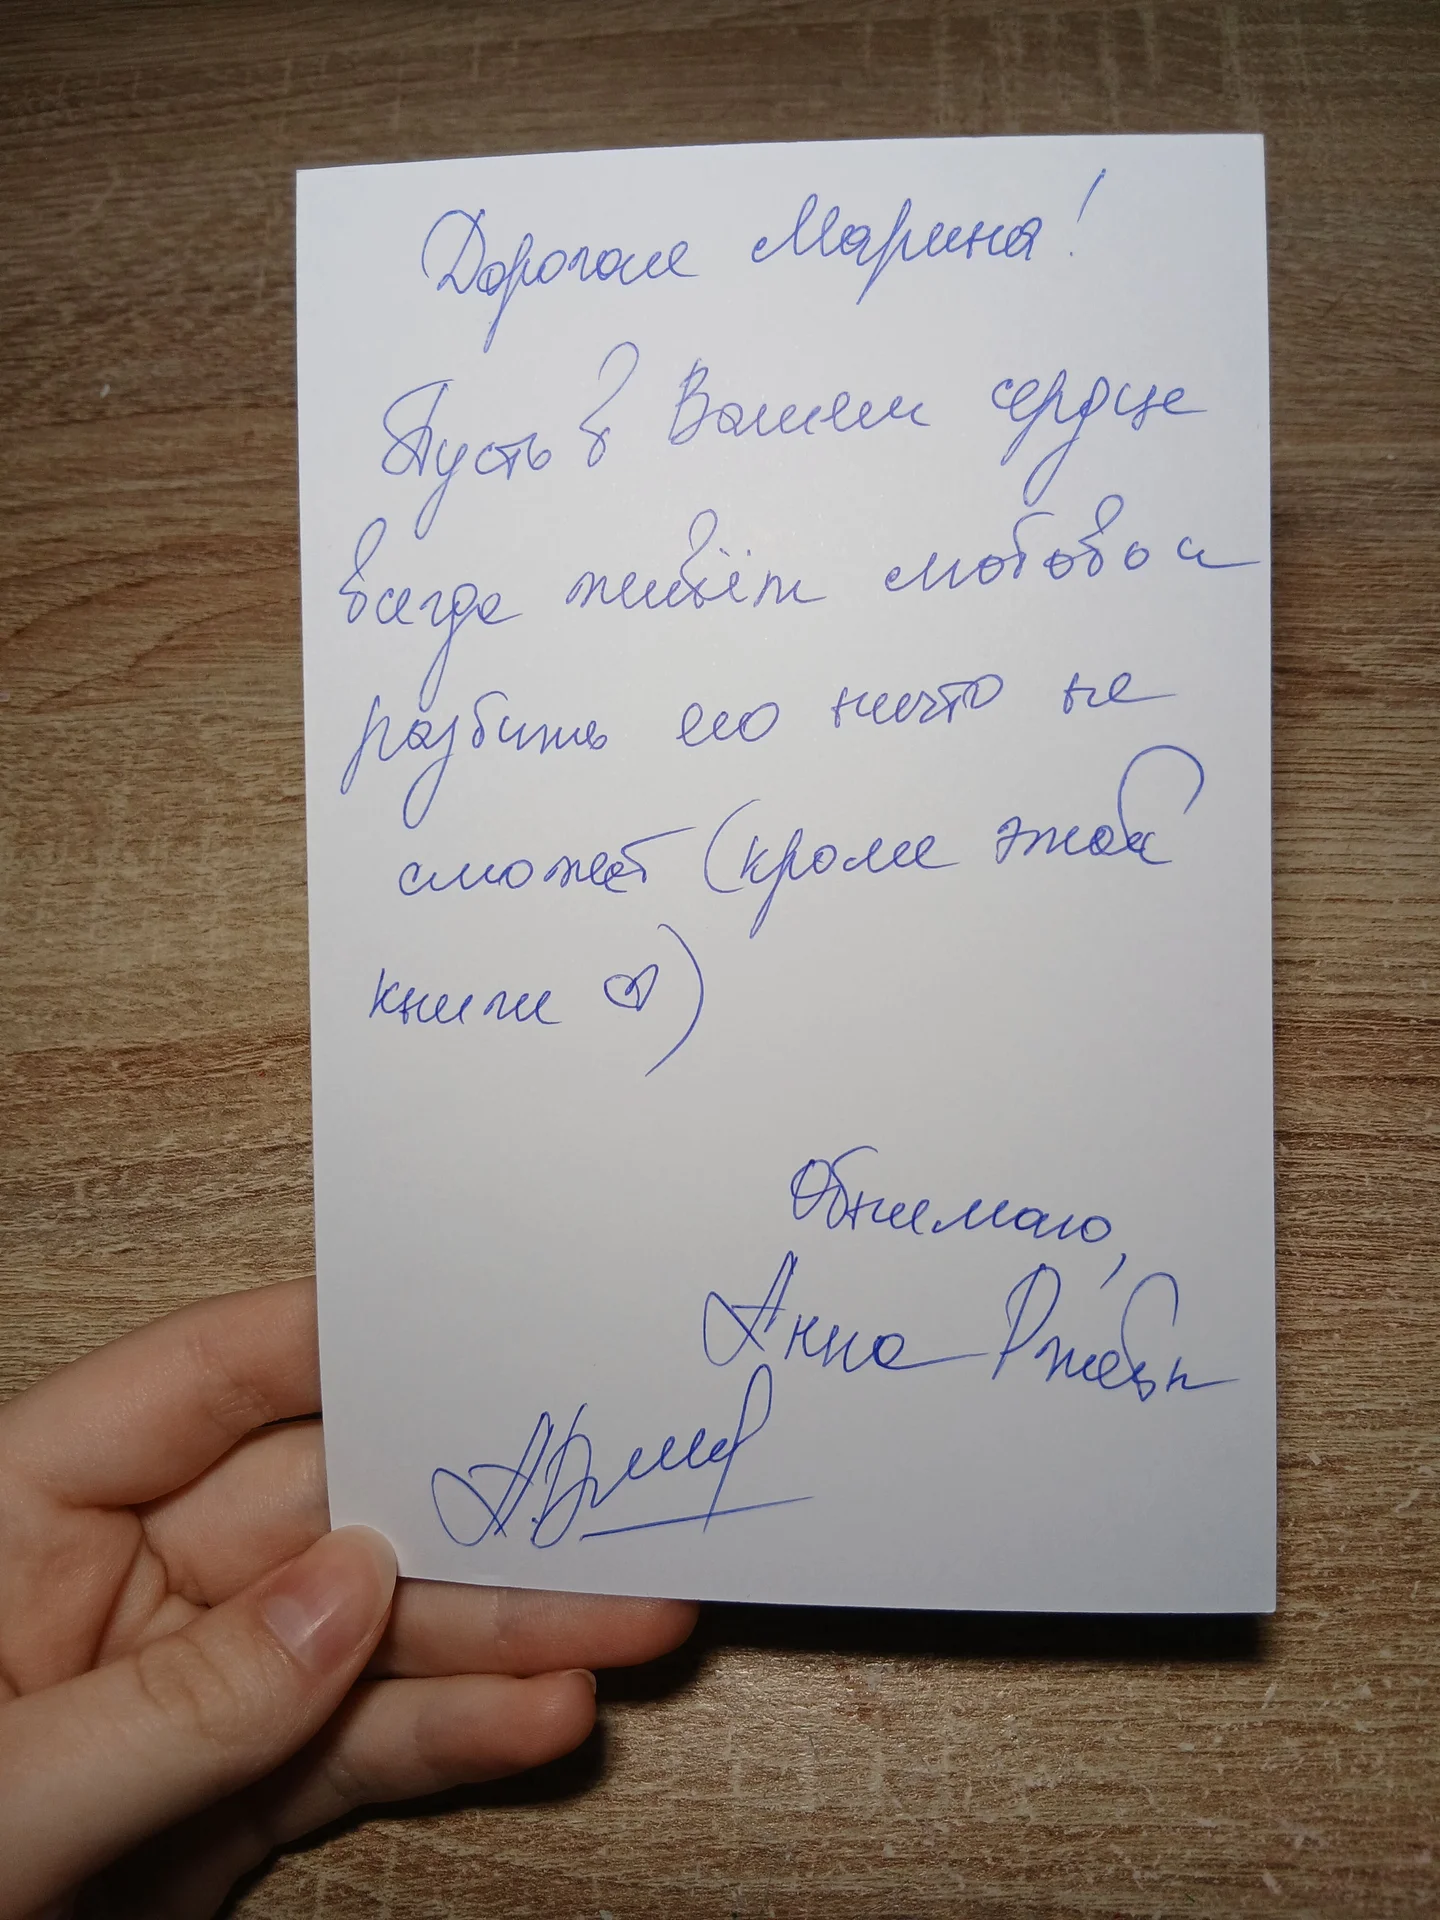 Дорогая Марина!
Пусть в Вашем сердце
всегда живёт любовь и
разбить его ничто не
сможет (кроме этой
книги ♡)
Обнимаю,
Анна